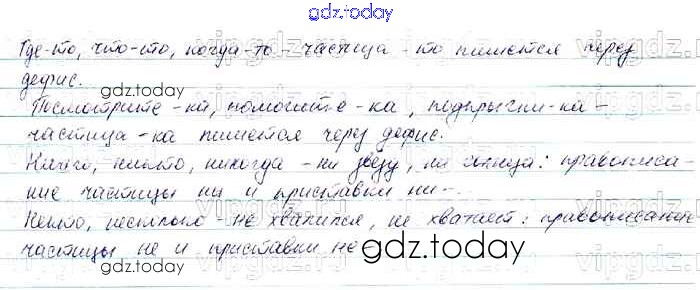 gdz.today
Где-то, что-то, когда-то - частица -то пишется через
дефис.
gdz.today
Посмотрите-ка, помогите-ка, подпрыгни-ка -
частица -ка пишется через дефис.
Никого, никто, никогда - ни звезд, ни солнца: правописа-
ние частицы ни и приставки ни-.
Некто, несколько - не хвалился, не хватает: правописание
частицы не и приставки не
gdz.today
gdz.today